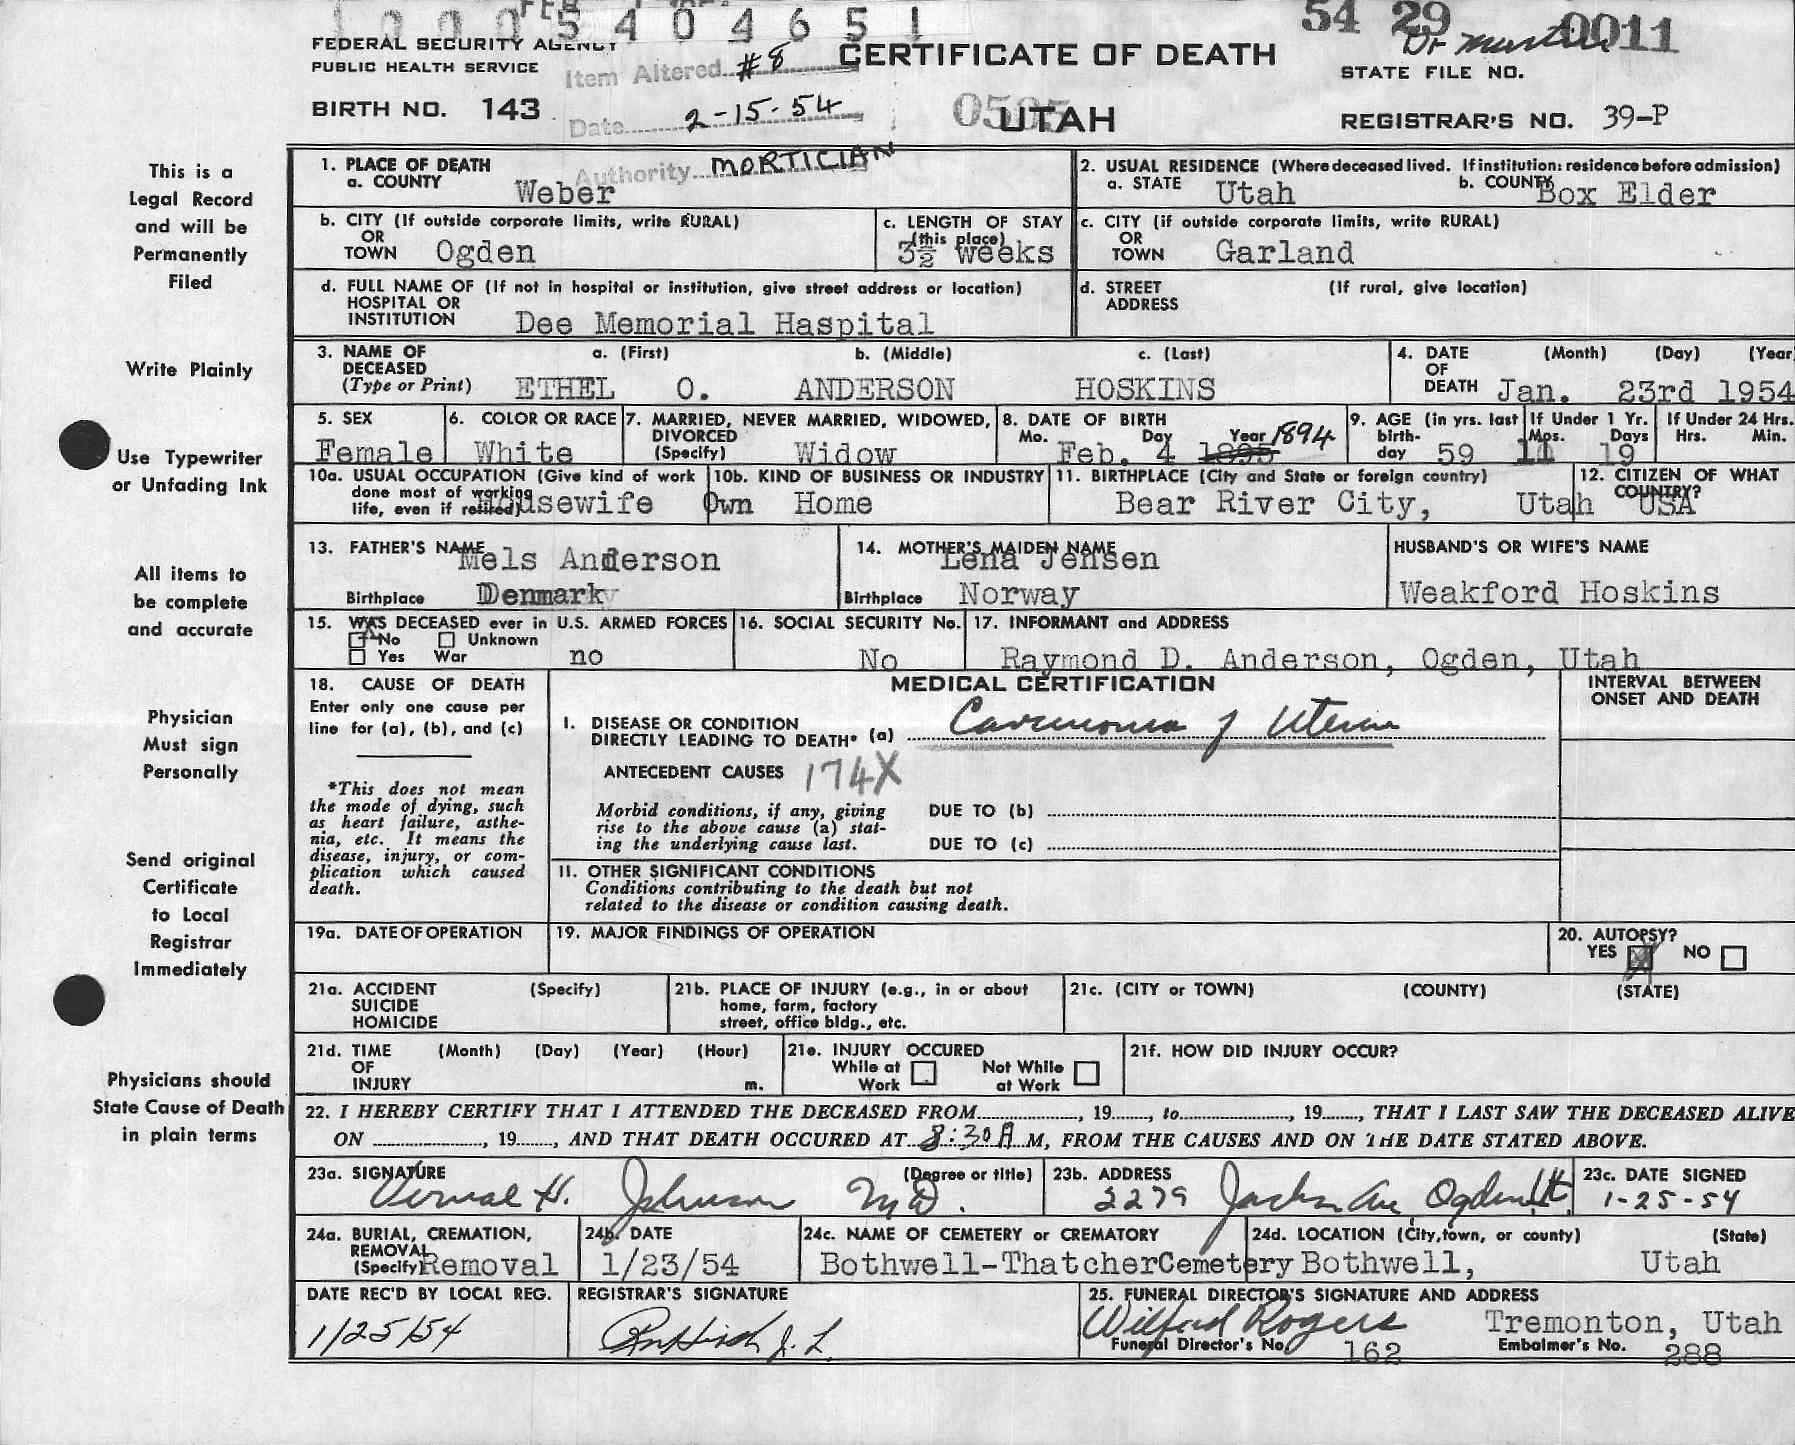 1000 5404651
FEB
54 29 0011
FEDERAL SECURITY AGENCY
PUBLIC HEALTH SERVICE
Item Altered #8
CERTIFICATE OF DEATH
STATE FILE NO.
BIRTH NO. 143
Date 2-15-54
UTAH
REGISTRAR'S NO. 39-P
Authority MORTICIAN
This is a
Legal Record
and will be
Permanently
Filed
Write Plainly
Use Typewriter
or Unfading Ink
All items to
be complete
and accurate
Physician
Must sign
Personally
Send original
Certificate
to Local
Registrar
Immediately
Physicians should
State Cause of Death
in plain terms
1. PLACE OF DEATH
a. COUNTY Weber
2. USUAL RESIDENCE (Where deceased lived. If institution: residence before admission)
a. STATE Utah b. COUNTY Box Elder
b. CITY (If outside corporate limits, write RURAL)
OR
TOWN Ogden
c. LENGTH OF STAY
(this place)
3½ weeks
c. CITY (if outside corporate limits, write RURAL)
OR
TOWN Garland
d. FULL NAME OF (If not in hospital or institution, give street address or location)
HOSPITAL OR
INSTITUTION Dee Memorial Haspital
d. STREET (If rural, give location)
ADDRESS
3. NAME OF a. (First) b. (Middle) c. (Last)
DECEASED
(Type or Print) ETHEL O. ANDERSON HOSKINS
4. DATE (Month) (Day) (Year)
OF
DEATH Jan. 23rd 1954
5. SEX
Female
6. COLOR OR RACE
White
7. MARRIED, NEVER MARRIED, WIDOWED,
DIVORCED
(Specify) Widow
8. DATE OF BIRTH
Mo. Day Year 1894
Feb. 4 1895
9. AGE (in yrs. last
birth-
day 59
If Under 1 Yr.
Mos. Days
11 19
If Under 24 Hrs.
Hrs. Min.
10a. USUAL OCCUPATION (Give kind of work
done most of working
life, even if retired) Housewife
10b. KIND OF BUSINESS OR INDUSTRY
Own Home
11. BIRTHPLACE (City and State or foreign country)
Bear River City, Utah
12. CITIZEN OF WHAT
COUNTRY?
USA
13. FATHER'S NAME
Mels Anderson
Birthplace Denmark
14. MOTHER'S MAIDEN NAME
Lena Jensen
Birthplace Norway
HUSBAND'S OR WIFE'S NAME
Weakford Hoskins
15. WAS DECEASED ever in U.S. ARMED FORCES
No Unknown
Yes War no
16. SOCIAL SECURITY No.
No
17. INFORMANT and ADDRESS
Raymond D. Anderson, Ogden, Utah
18. CAUSE OF DEATH
Enter only one cause per
line for (a), (b), and (c)
*This does not mean
the mode of dying, such
as heart failure, asthe-
nia, etc. It means the
disease, injury, or com-
plication which caused
death.
MEDICAL CERTIFICATION
I. DISEASE OR CONDITION
DIRECTLY LEADING TO DEATH* (a) Carcinoma of Uterus
ANTECEDENT CAUSES 174X
Morbid conditions, if any, giving
rise to the above cause (a) stat-
ing the underlying cause last.
DUE TO (b)
DUE TO (c)
II. OTHER SIGNIFICANT CONDITIONS
Conditions contributing to the death but not
related to the disease or condition causing death.
INTERVAL BETWEEN
ONSET AND DEATH
19a. DATE OF OPERATION
19. MAJOR FINDINGS OF OPERATION
20. AUTOPSY?
YES NO
21a. ACCIDENT (Specify)
SUICIDE
HOMICIDE
21b. PLACE OF INJURY (e.g., in or about
home, farm, factory
street, office bldg., etc.
21c. (CITY or TOWN) (COUNTY) (STATE)
21d. TIME (Month) (Day) (Year) (Hour)
OF
INJURY m.
21e. INJURY OCCURED
While at Not While
Work at Work
21f. HOW DID INJURY OCCUR?
22. I HEREBY CERTIFY THAT I ATTENDED THE DECEASED FROM , 19 , to , 19 , THAT I LAST SAW THE DECEASED ALIVE
ON , 19 , AND THAT DEATH OCCURED AT 8:30 A M, FROM THE CAUSES AND ON THE DATE STATED ABOVE.
23a. SIGNATURE (Degree or title)
Vernal H. Johnson MD.
23b. ADDRESS
2279 Jackson Ave Ogden Ut
23c. DATE SIGNED
1-25-54
24a. BURIAL, CREMATION,
REMOVAL
(Specify) Removal
24b. DATE
1/23/54
24c. NAME OF CEMETERY OR CREMATORY
Bothwell-ThatcherCemetery
24d. LOCATION (City, town, or county) (State)
Bothwell, Utah
DATE REC'D BY LOCAL REG.
1/25/54
REGISTRAR'S SIGNATURE
25. FUNERAL DIRECTOR'S SIGNATURE AND ADDRESS
Wilford Rogers Tremonton, Utah
Funeral Director's No. 162 Embalmer's No. 288